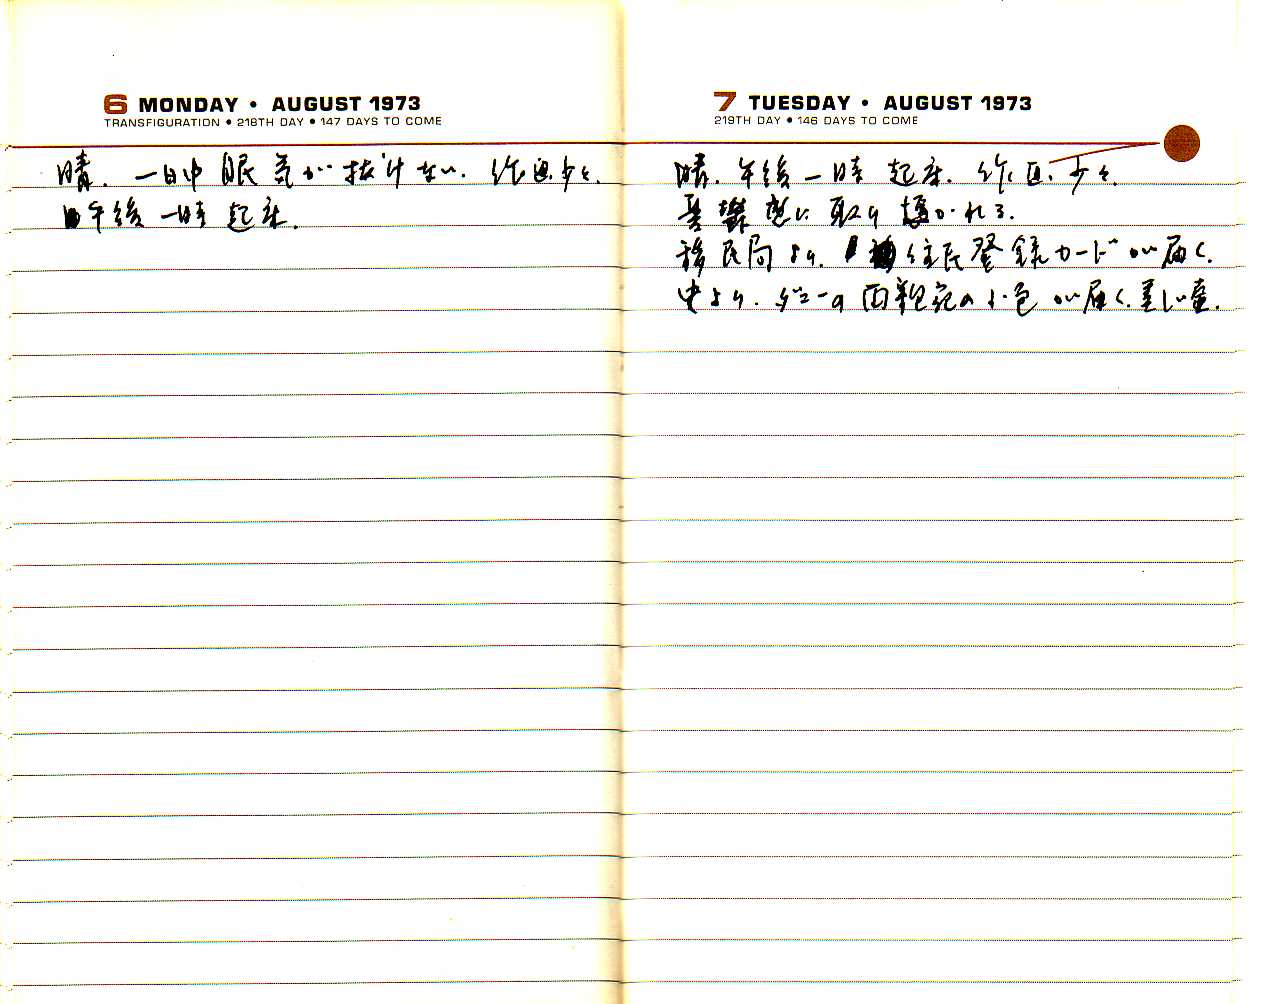 6 MONDAY • AUGUST 1973
TRANSFIGURATION • 218TH DAY • 147 DAYS TO COME
晴. 一日中眠気が抜けない. 作画少々.
午後一時起床.
7 TUESDAY • AUGUST 1973
219TH DAY • 146 DAYS TO COME
晴. 午後一時起床. 作画. 少々.
憂鬱感に取り憑かれる.
移民局より. 住民登録カードが届く.
より. 両親宛の小包が届く.